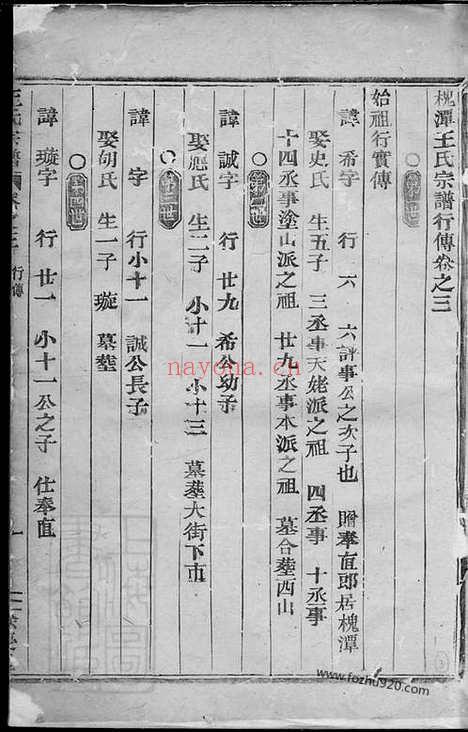 槐潭王氏宗譜行傳卷之三
始祖行實傳
諱希字 行六 六評事公之次子也 贈奉直郎居槐潭
娶史氏 生五子 三丞事天姥派之祖 四丞事 十丞事
十四丞事塗山派之祖 廿九丞事本派之祖 墓合塟西山
諱誠字 行廿九 希公幼子
娶應氏 生二子 小十一 小十三 墓塟大街下市
諱 字 行小十一 誠公長子
娶胡氏 生一子 璇 墓塟
諱璇字 行廿一 小十一公之子 仕奉直
王氏宗譜 行傳
nayona.cn
www.fozhu920.com